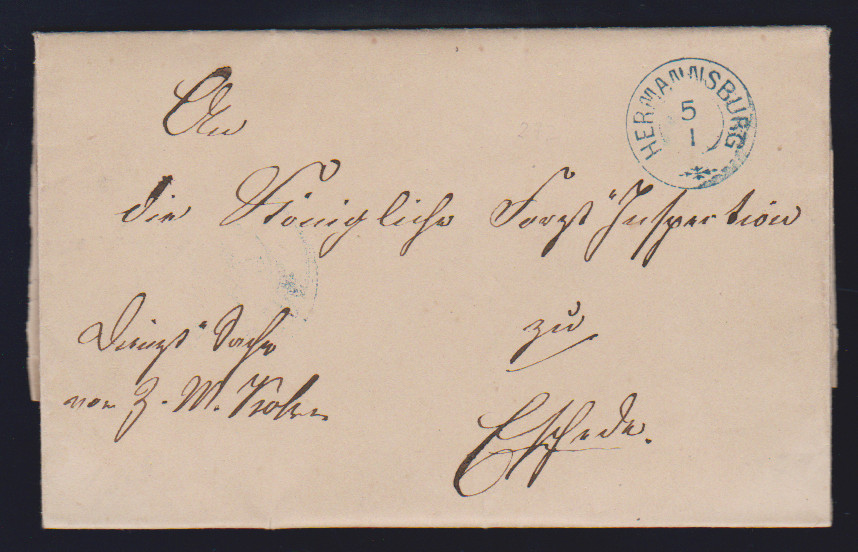 An
HERMANNSBURG
5
1
die Königliche Forst-Inspection
zu
Dienst-Sache
von Z. M.
Eschede.